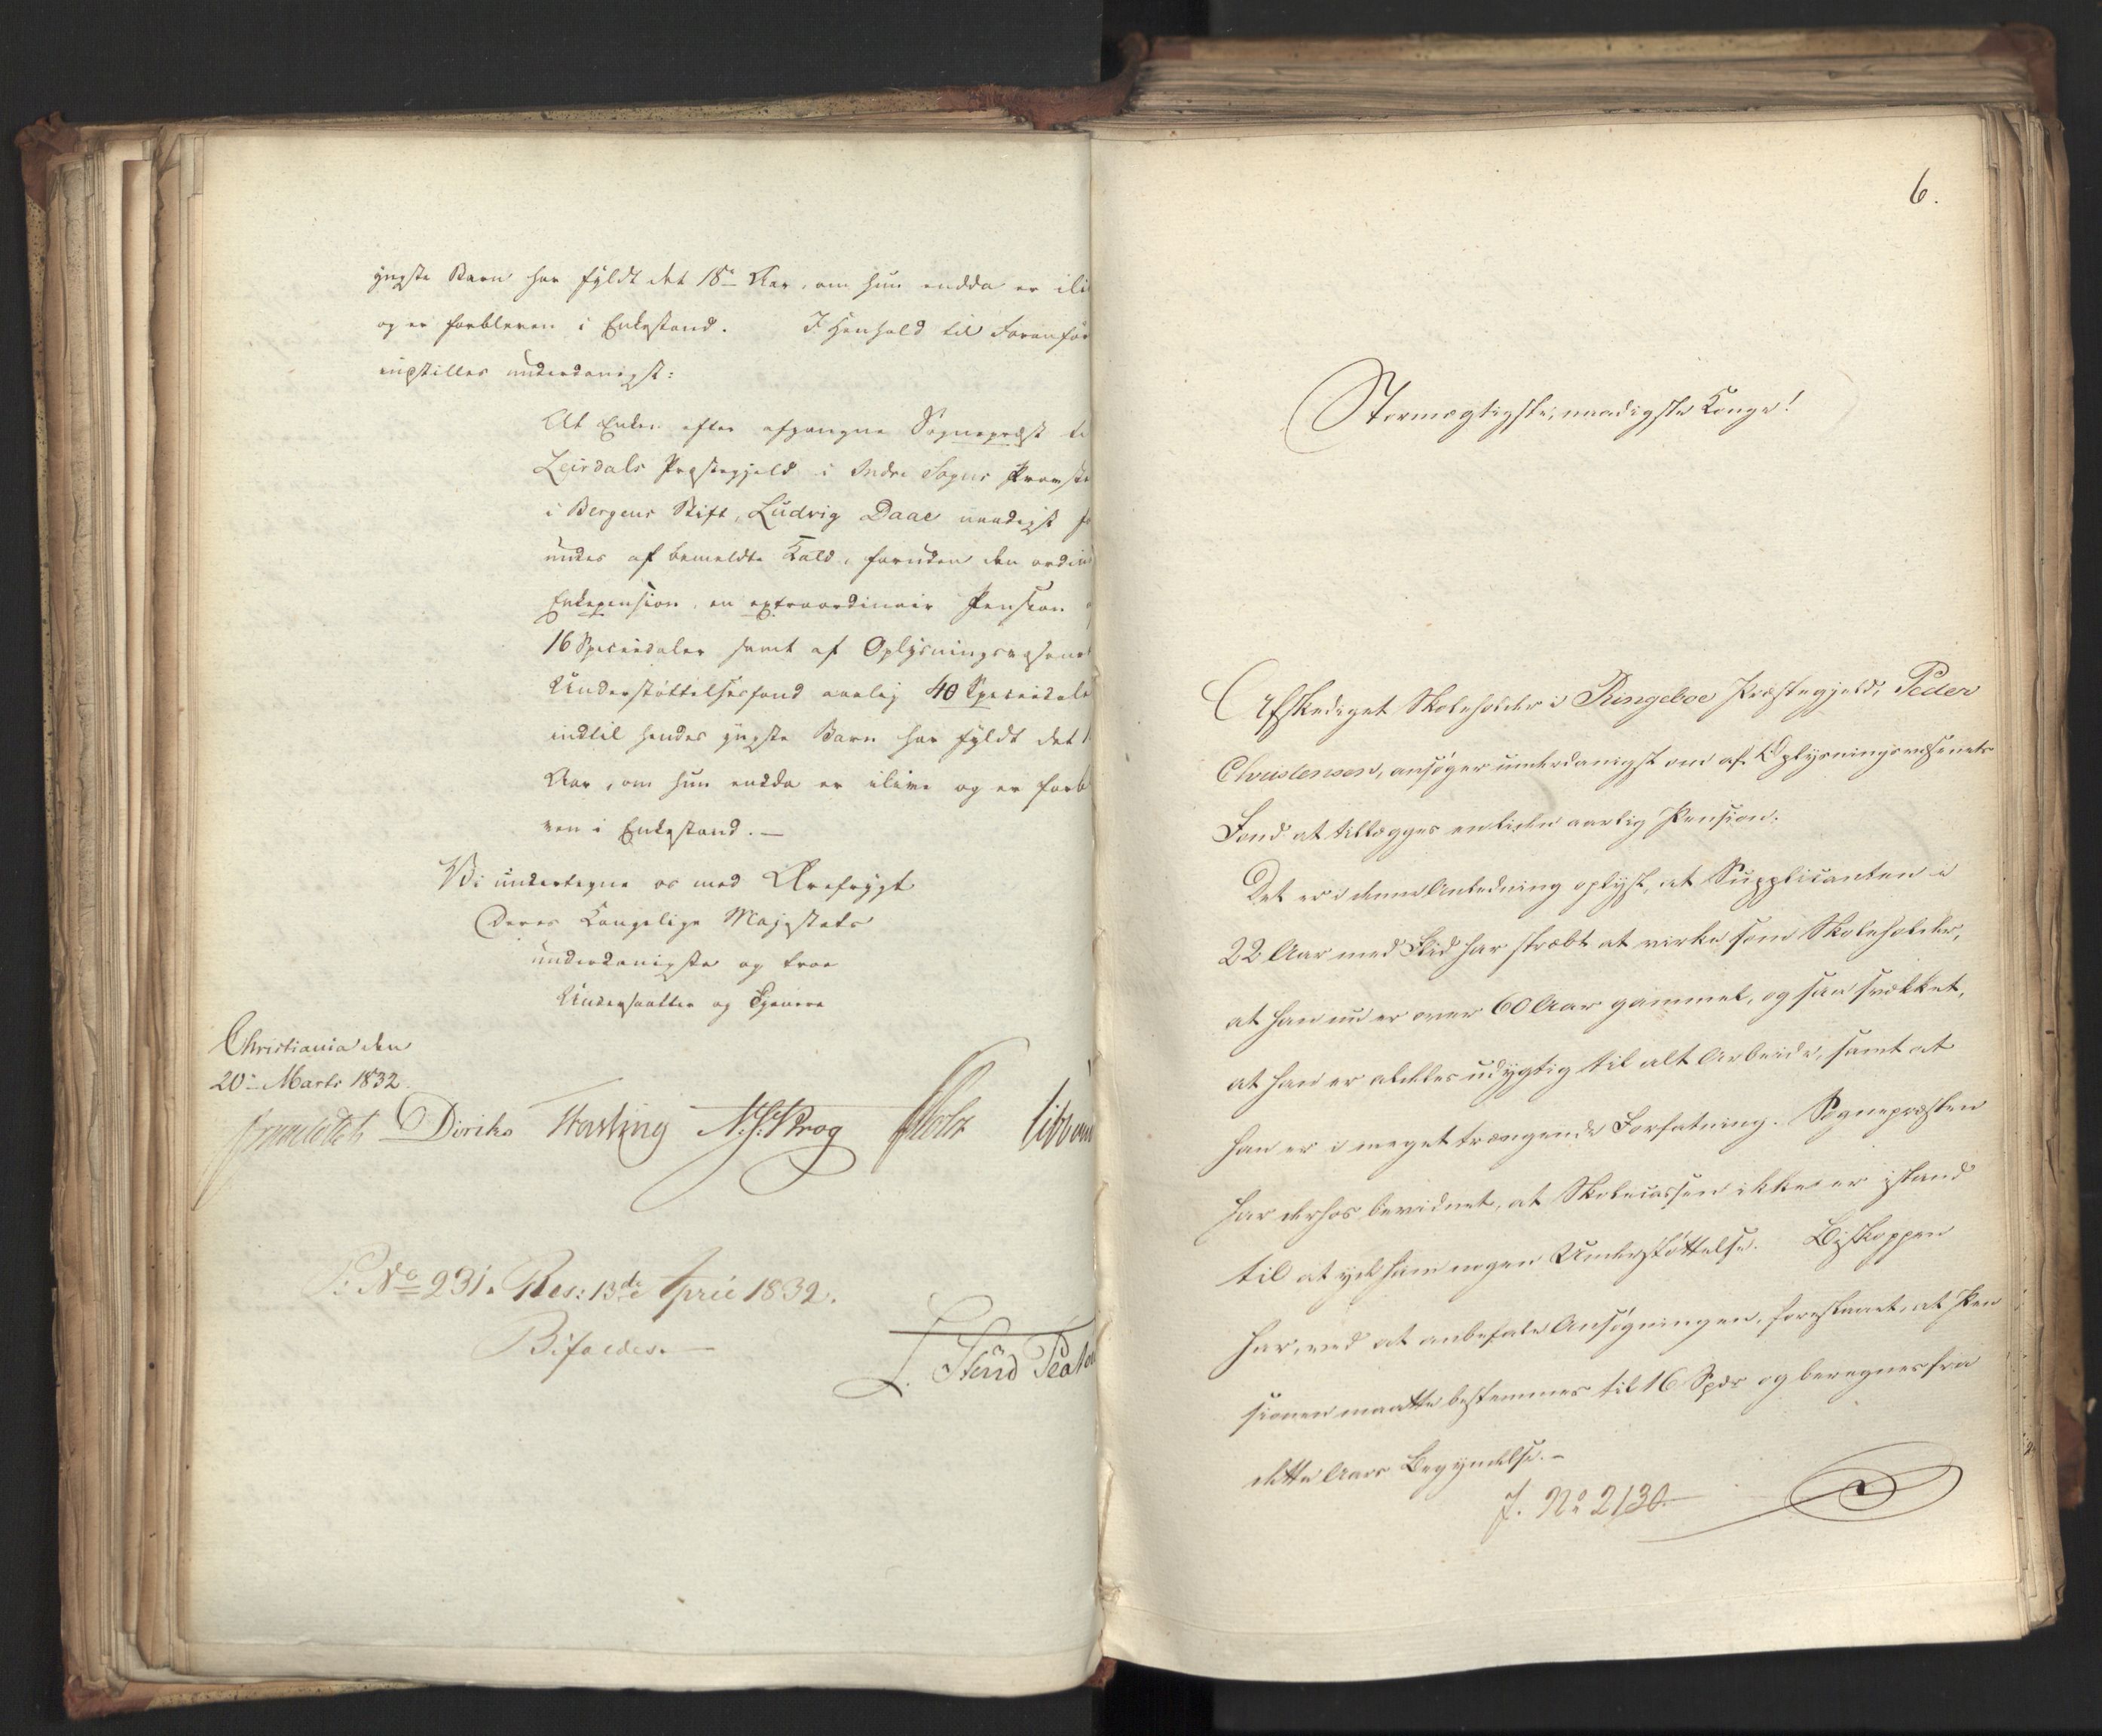 yngste Barn har fyldt det 18de Aar, om hun endda er ili
og er forbleven i Enkestand. I Henhold til Foranfør
indstilles underdanigst:
At Enken efter afgangne Sognepræst ti
Leirdals Præstegjeld i Indre Sogns Provstie
i Bergens Stift, Ludvig Daae naadigst
undes af bemeldte Kald, foruden den ordin
Enkepension, en extraordinair Pension
16 Speciedaler samt af Oplysningsvæsenet
Understøttelsesfond aarlig 40 Speciedale
indtil hendes yngste Barn har fyldt det 1
Aar, om hun endda er ilive og er forb
ven i Enkestand. —
Vi undertegne os med Ærefrygt
Deres Kongelige Majestæts
underdanigste og troe
Undersaatter og Tjenere
Christiania den
20de Marts 1832.
Diriks Vogt Holst
No 231. Res: 13de April 1832.
Bifaldes. —
6.
Stormægtigste, naadigste Konge!
Afskediget Skoleholder i Ringeboe Præstegjeld, Peder
Christensen, ansøger underdanigst om af Oplysningsvæsenets
Fond at tillægges en liden aarlig Pension.
Det er i denne Anledning oplyst, at Supplicanten i
22 Aar med Flid har stræbt at virke som Skoleholder,
at han nu er over 60 Aar gammel, og saa svækket,
at han er aldeles udygtig til alt Arbeide, samt at
han er i meget trængende Forfatning. Sognepræsten
har derhos bevidnet, at Skolecassen ikke er istand
til at yde ham nogen Understøttelse. Biskoppen
har, ved at anbefale Ansøgningen, foreslaaet, at Pen
sionen maatte bestemmes til 16 Spdr og beregnes fra
dette Aars Begyndelse. —
J. No 2130.—